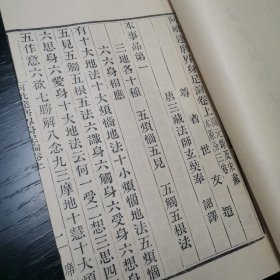 阿毗達磨界身足論卷上
尊者世友造
唐三藏法師玄奘奉詔譯
本事品第一
三地各十種 五煩惱五見 五觸五根法
六六身相應
有十大地法十大煩惱地法十小煩惱地法五煩惱
五見五觸五根五法六識身六觸身六受身六想身
六思身六愛身十大地法云何 一受二想三思四
五作意六欲七勝解八念九三摩地十慧十大